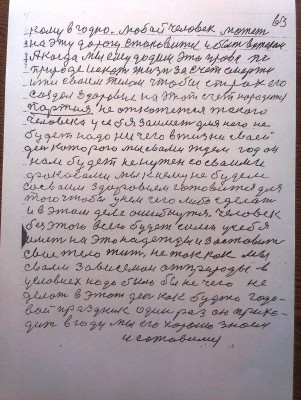 63
кому в годно. любой человек может
на эту дорогу становится и быть в
А когда мы ему дадим это право по
природе искать жизнь за счет смерти
или своим телом чтобы страх его
создал здоровье на этот счет народит
партиз не откажется такого
человека у себя займет для него не
будет надо ничего в жизни своей
ден которого мы сами ждем год он
нам будет не нужен со своими
мы к нему не будем
со своим здоровием готовится для
того чтобы у нем чего либо сделать
и в этом деле ошибнутся. человек
без этого всего будет силен у себя
на это надежды и заставит
свое тело жит, не так как мы
своем зависемом от природы в
условиех надо было бы не чего не
делат в этот ден как будно годо-
вой празник один раз он прихо-
дит в году мы его хорошо знаем
и готовимся